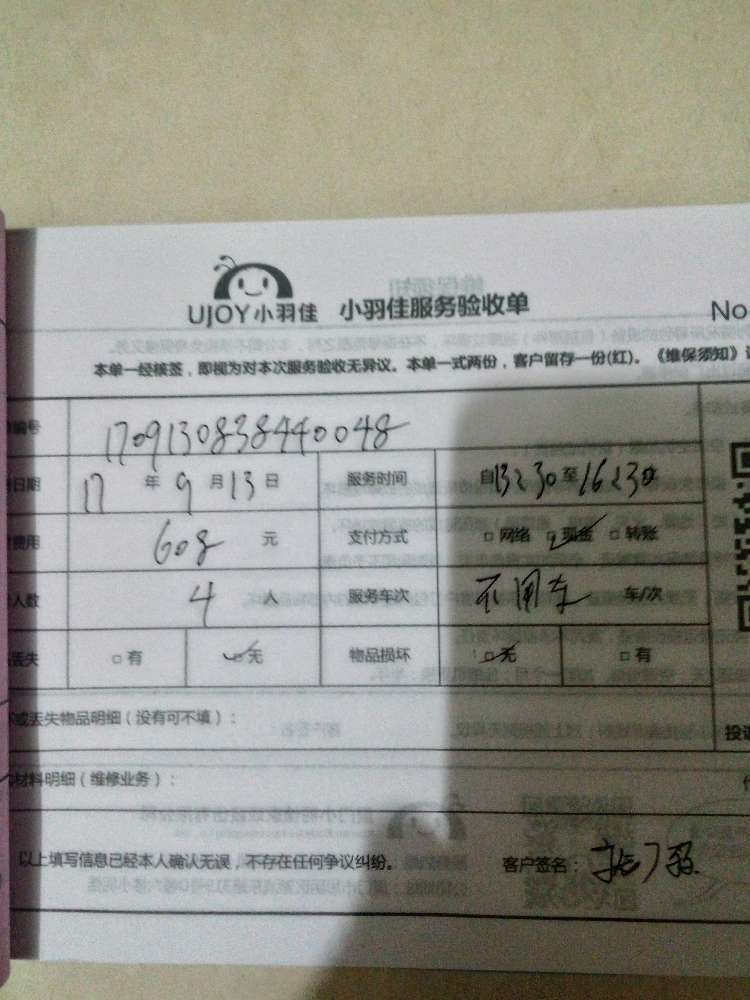 UJOY小羽佳 小羽佳服务验收单
No
本单一经核签，即视为对本次服务验收无异议。本单一式两份，客户留存一份(红)。《维保须知》
编号 1709130838440048
日期 17 年 9 月 13 日 服务时间 自13:30至16:30
费用 608 元 支付方式 □网络 □现金 □转账
人数 4 人 服务车次 不用车 车/次
丢失 □有 □无 物品损坏 □无 □有
或丢失物品明细（没有可不填）：
投诉
材料明细（维修业务）：
以上填写信息已经本人确认无误，不存在任何争议纠纷。 客户签名：